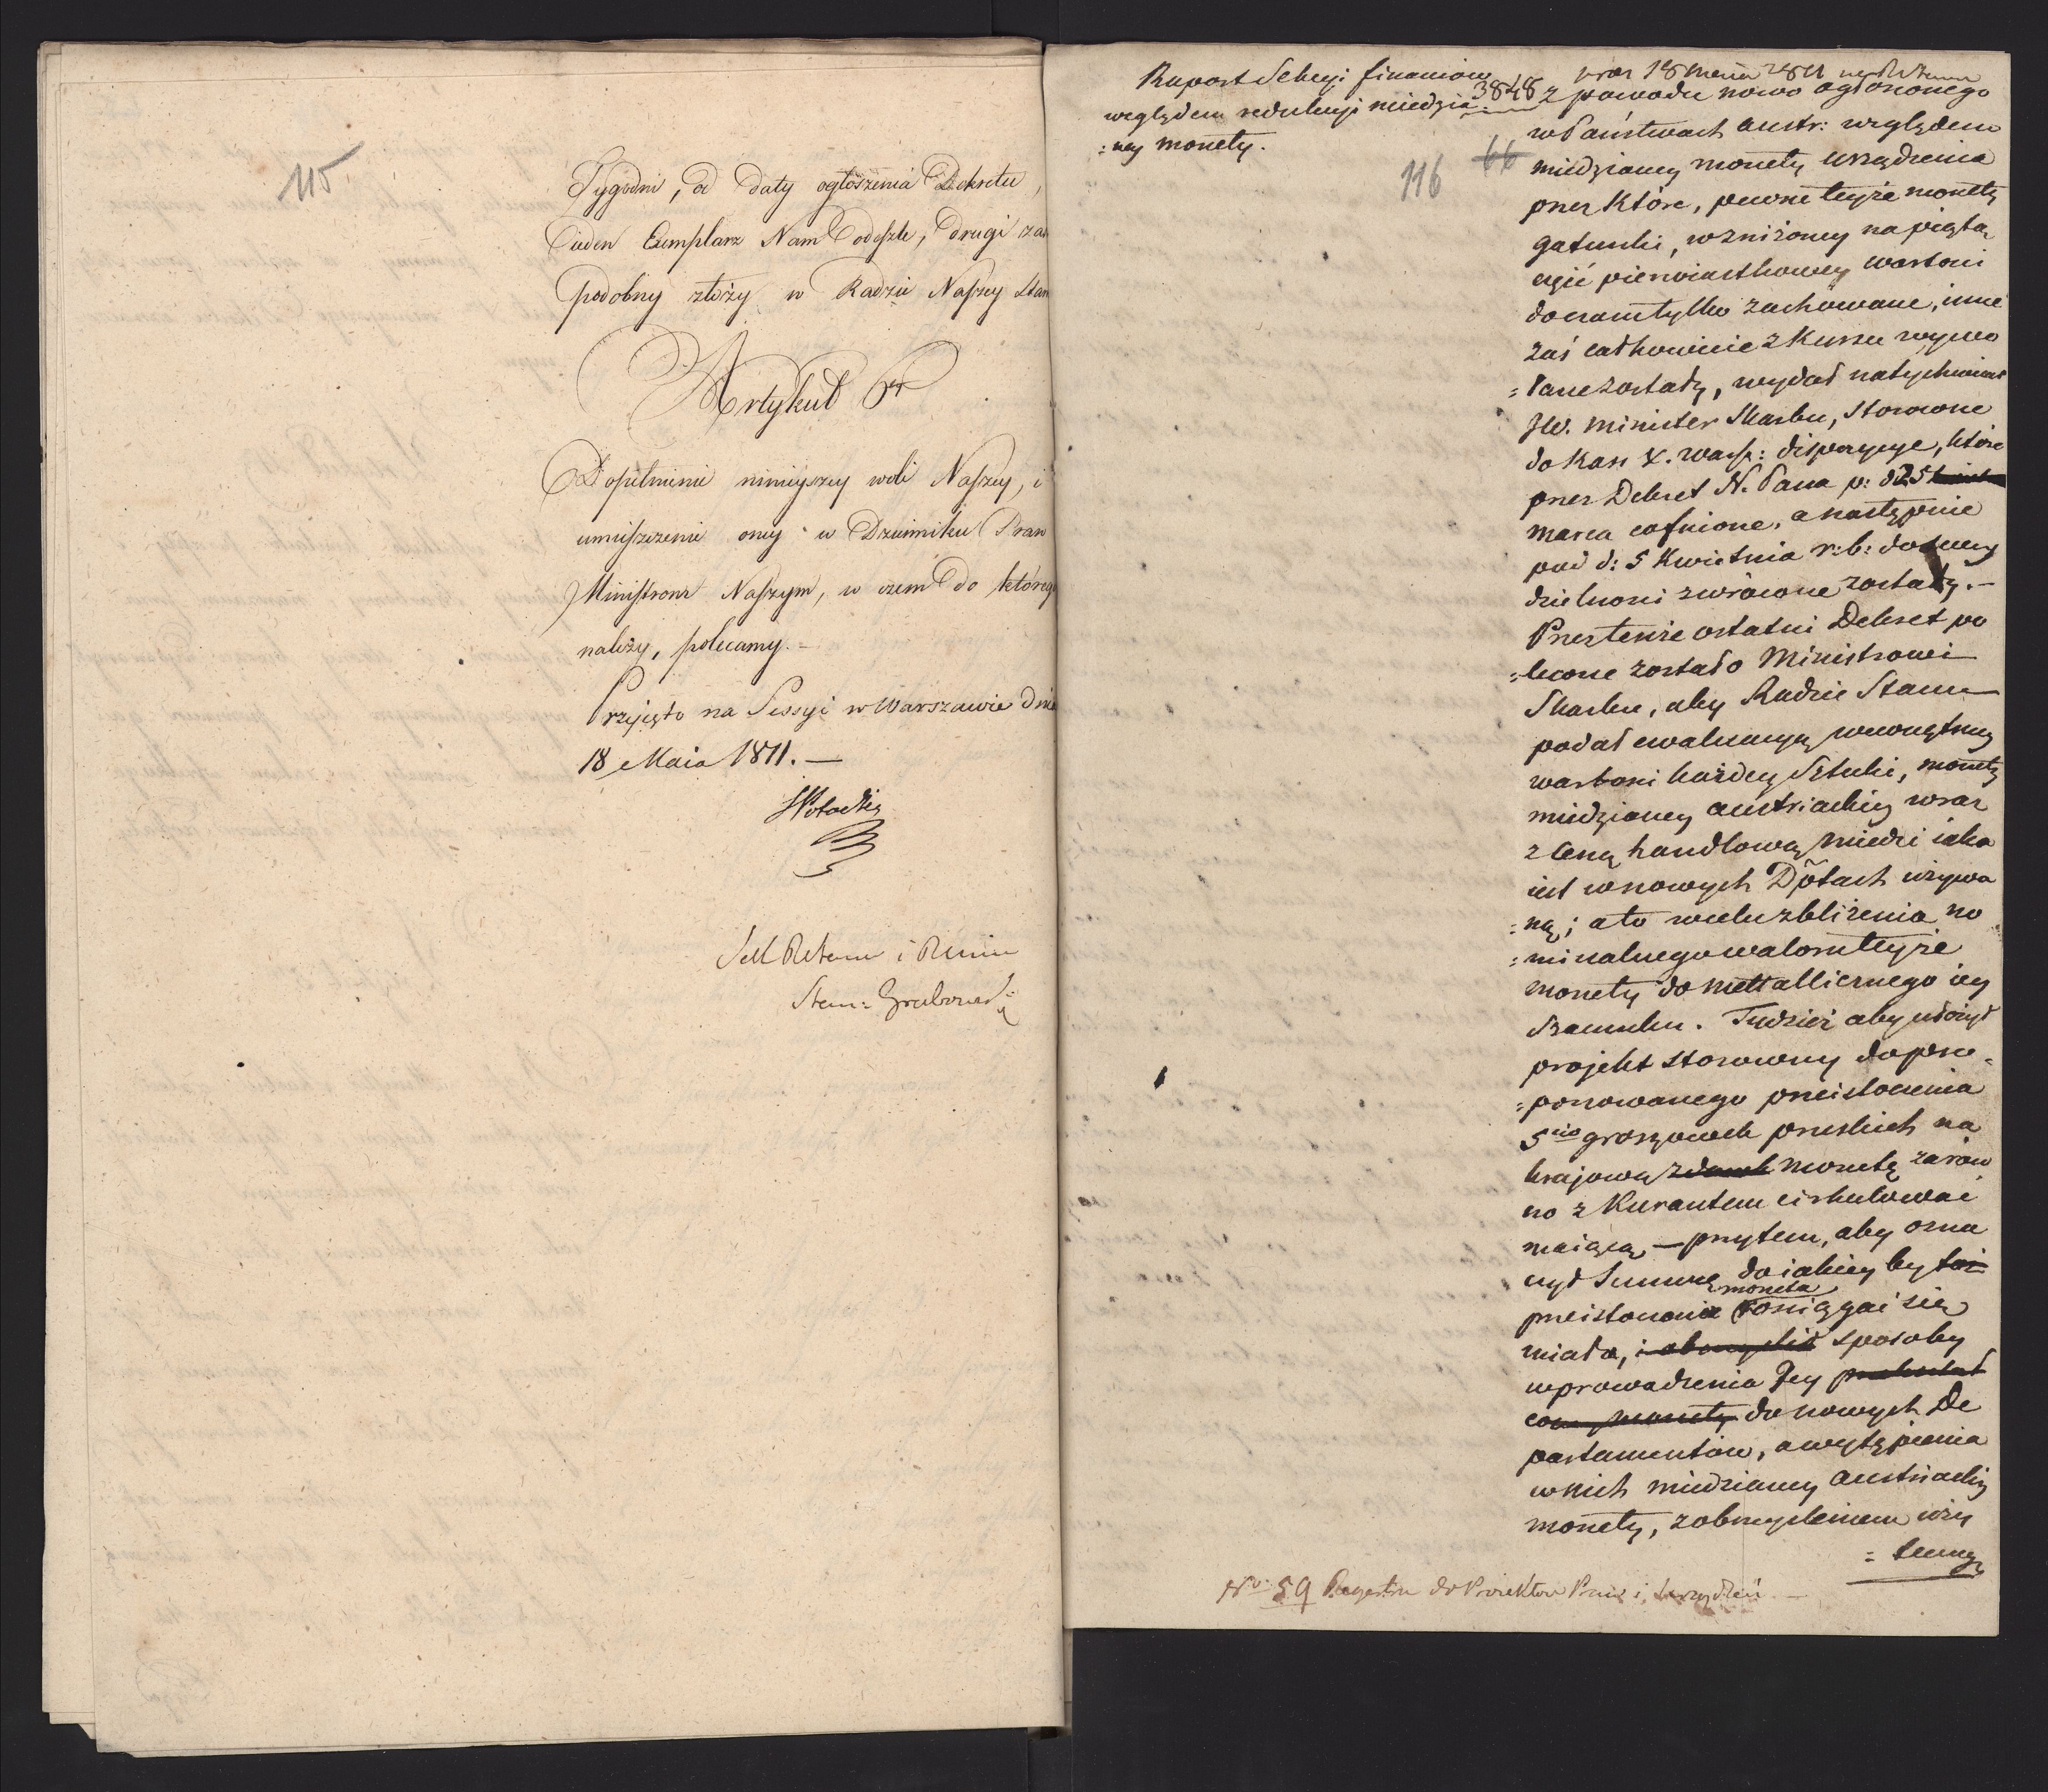 115
Tygodni, od daty ogłoszenia Dekretu,
ieden Exemplarz Nam odeszle, drugi zaś
podobny złoży w Radzie Naszey Stan
Artykuł 6
Dopilnienie ninieyszey woli Naszey, i
umieszczenie oney w Dzienniku Praw
Ministrom Naszym, w czem do którego
należy, polecamy.
Przyięto na Sessyi w Warszawie dnia
18 Maia 1811.
SPotocki
Sek Rstanu i Rmin
Stan:
Raport Sekcyi finansow
względem redukcyi miedzia=
=ney monety.
3848
116
66
z powodu nowo ogłoszonego
w Państwach austr: względem
miedzianey monety urządzenia
przez które, pewne teyże monety
gatunki, w zniżoney na piątą
częić pierwiastkowey wartości
do czasu tylko zachowane, inne
zaś całkowicie z kursu wywo
=łane zostały, wydał natychmiast
JW. Minister Skarbu, stosowne
do Kass X. Warsz: dispozycye, które
przez Dekret N. Pana p: d 25
marca cofnione, a następnie
pod d: 5 Kwietnia r: b: do swey
dzielnosci zwrócone zostały.
Przez tenże ostatni Dekret po
=lecone zostało Ministrowi
Skarbu, aby Radzie Stanu
podał ewaluacyą wewnętrzney
wartosci każdey Sztuki, monety
miedzianey austriackiey wraz
z ceną handlową miedzi iaka
iest w nowych Dptach używa
=ną; a to w celu zbliżenia no
=minalnego waloru teyże
monety do mettallicznego iey
Szacunku. Tudzież aby ułożył
projekt stosowny do pro=
=ponowanego przeistoczenia
5cio groszowek pruskich na
krajową monetę zarów
no z Kurantem cirkulować
maiącą, — przytem, aby ozna
czył Summę do iakiey by taż
moneta
przeistoczona sciągać się
miała, sposoby
wprowadzenia Jey
do nowych De
partamentów, a wytępienia
w nich miedzianey austriackiey
monety, z obmysleniem uży
=teczney
No 59 Regestru do Proiektow Praw i Urządzeń.